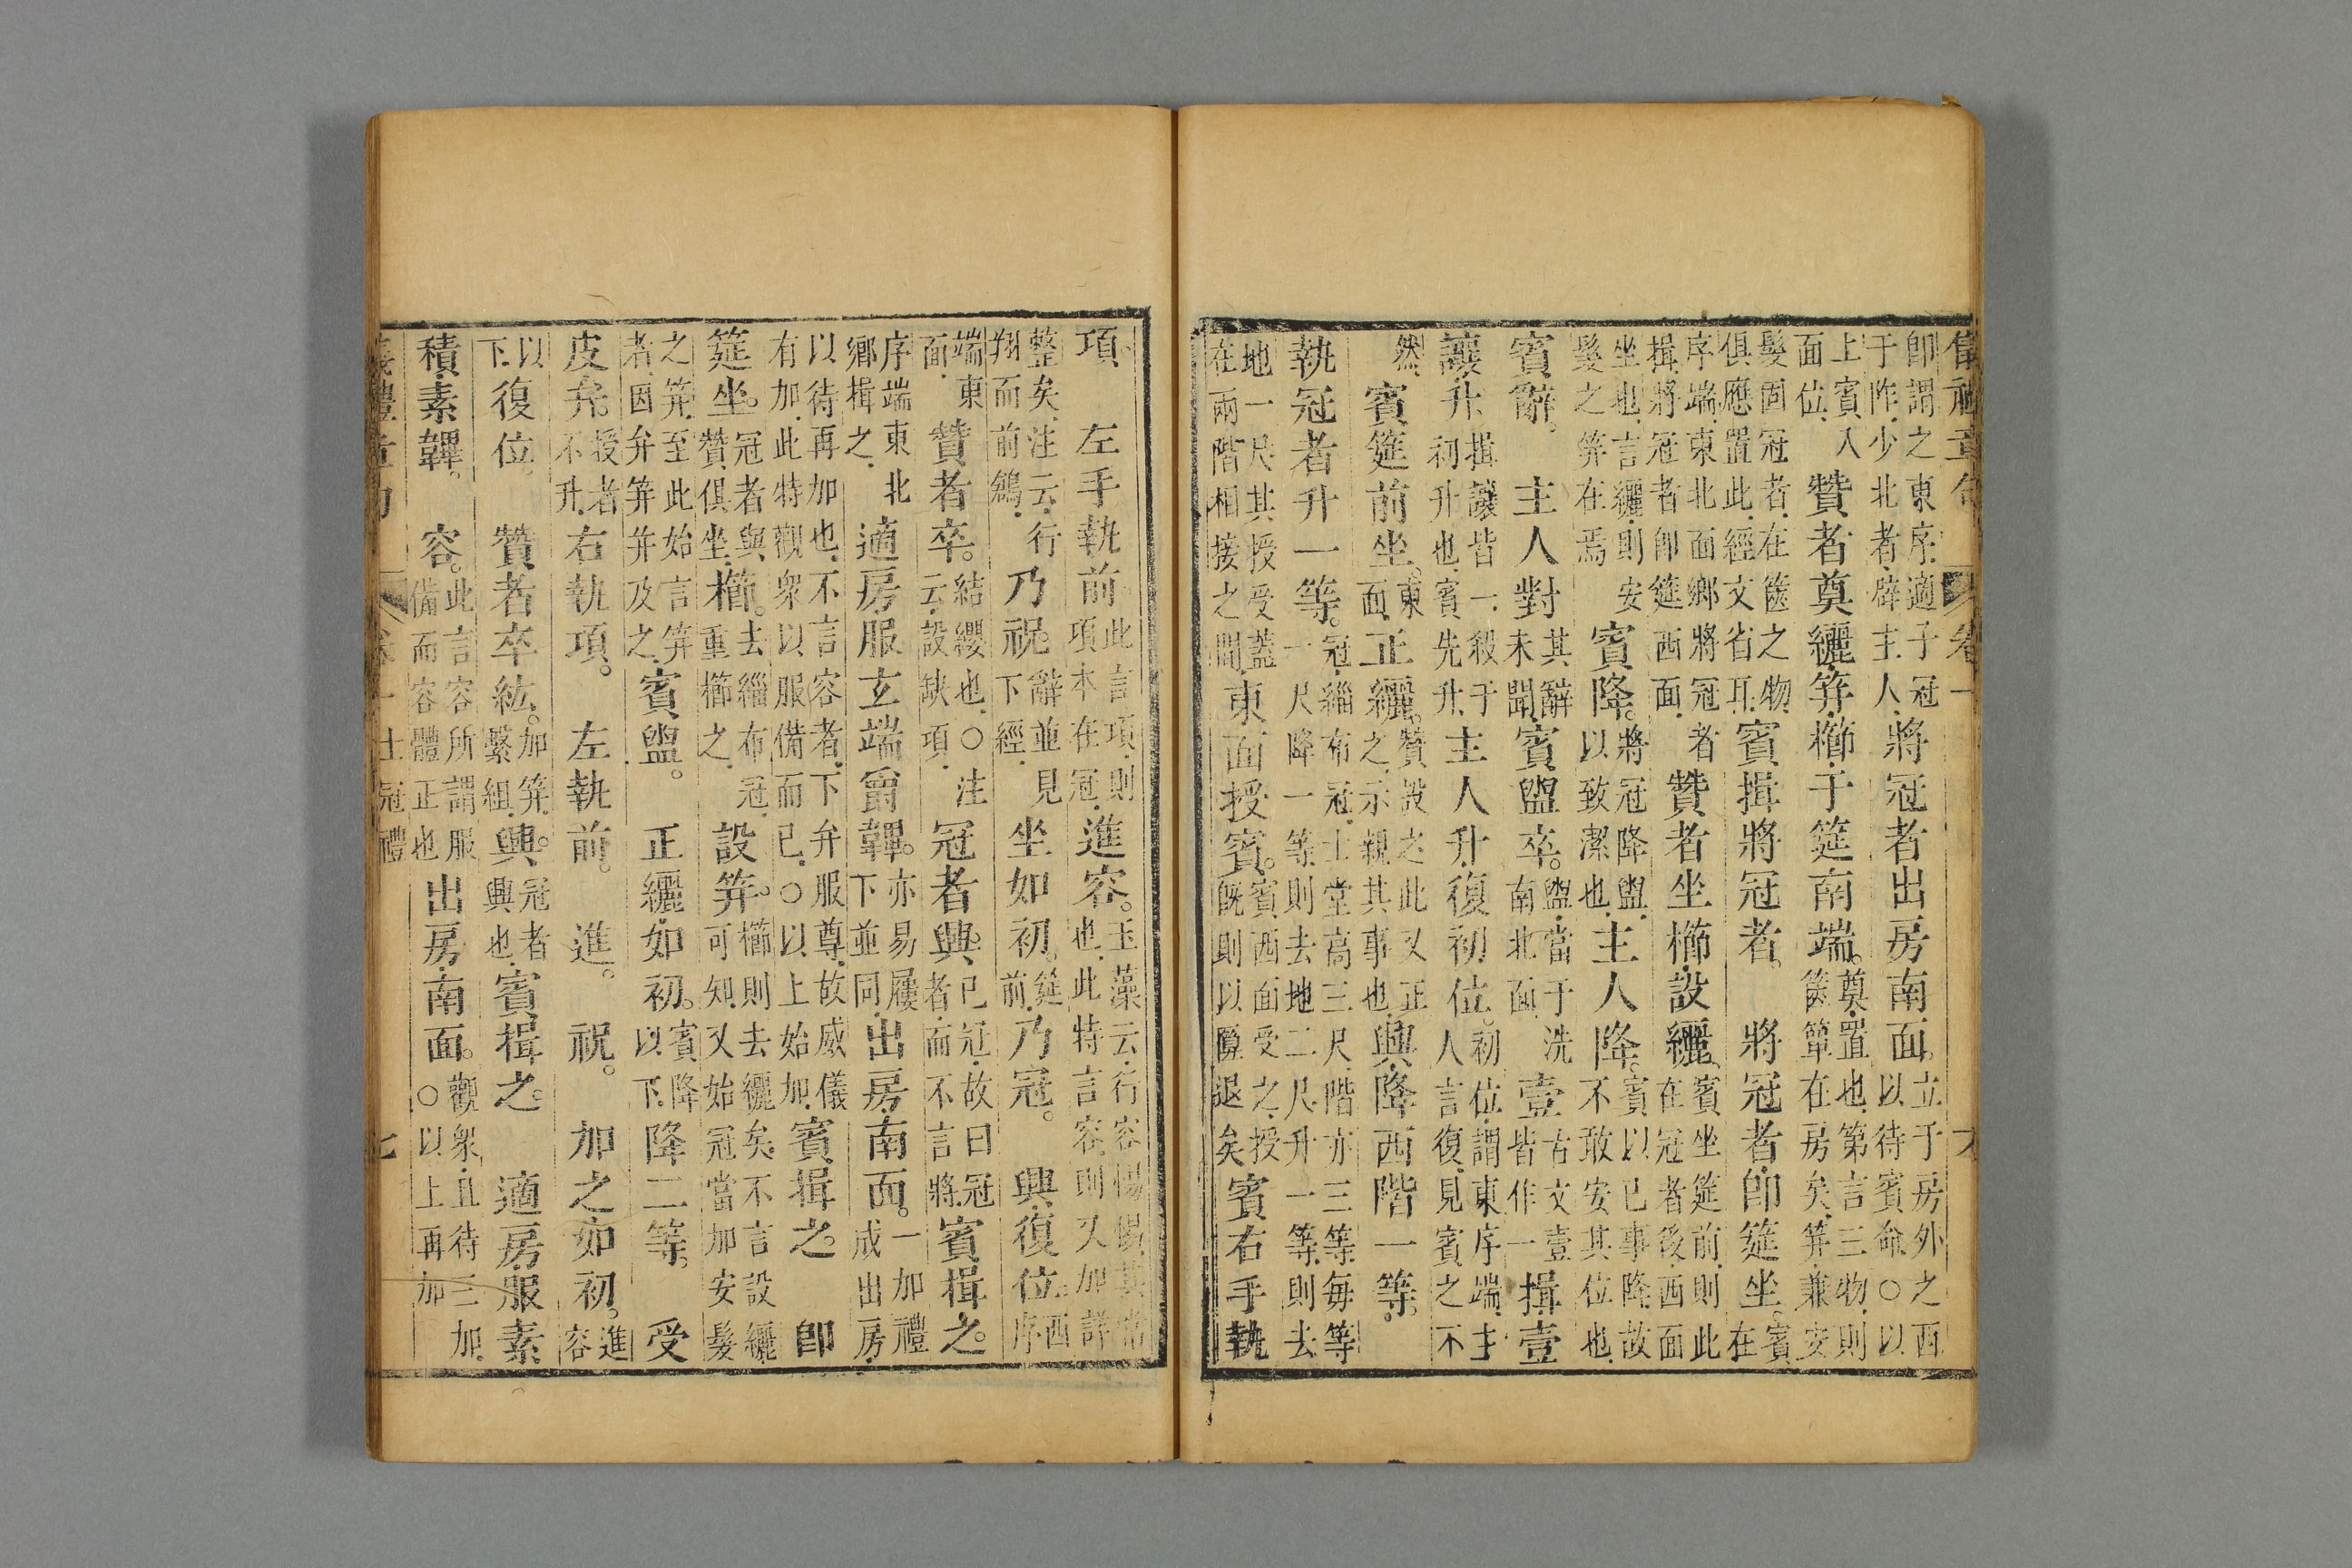 儀禮章句　卷一　六
即謂之東序適子冠于阼少北者辟主人將冠者出房南面。立于房外之西以待賓命○以
上賓入面位贊者奠纚笄櫛于筵南端。奠置也第言三物則篋簞在房矣笄兼安
髮固冠者在篋之物俱應置此經文省耳賓揖將冠者。將冠者即筵坐。賓在
序端東北面鄉將冠者揖將冠者即筵西面贊者坐櫛設纚。賓坐筵前則此在冠者後西面
坐也言纚則安髮之笄在焉賓降。將冠降盥以致潔也主人降。賓以已事降故不敢安其位也
賓辭。主人對其辭未聞賓盥卒。盥當于洗南北面壹古文壹皆作一揖壹
讓升揖讓皆一殺于初升也賓先升主人升復初位。初位謂東序端主人言復見賓之不
然賓筵前坐。東面正纚。贊設之此又正之示親其事也興降西階一等。
執冠者升一等。冠緇布冠士堂高三尺階亦三等每等一尺降一等則去地二尺升一等則去
地一尺其授受蓋在兩階相接之間東面授賓。賓西面受之授既則以隙退矣賓右手執
項左手執前此言項則項本在冠進容。玉藻云行容惕惕其常也此特言容則又加詳
整矣注云行翔而前鶬乃祝。辭並見下經坐如初。筵前乃冠。興復位西序
端東面贊者卒。結纓也○注云設缺項冠者興。已冠故曰冠者而不言將賓揖之。
序端東北鄉揖之適房服玄端爵韠。亦易屨下並同出房南面。一加禮成出房
以待再加也不言容者下弁服尊故威儀有加此特觀衆以服備而已○以上始加賓揖之。即
筵坐。冠者與贊俱坐櫛。去緇布冠重櫛之設笄。櫛則去纚矣不言設纚可知又始冠當加安髮
之笄至此始言笄者因弁笄并及之賓盥。正纚如初。賓降以下降二等。受
皮弁。授者不升右執項。左執前。進。祝。加之如初。進容
以下復位。贊者卒紘。加笄繫組興。冠者興也賓揖之。適房服素
積素韠。容。此言容所謂服備而容體正也出房南面。觀衆且待三加○以上再加
儀禮章句　卷一士冠禮　七